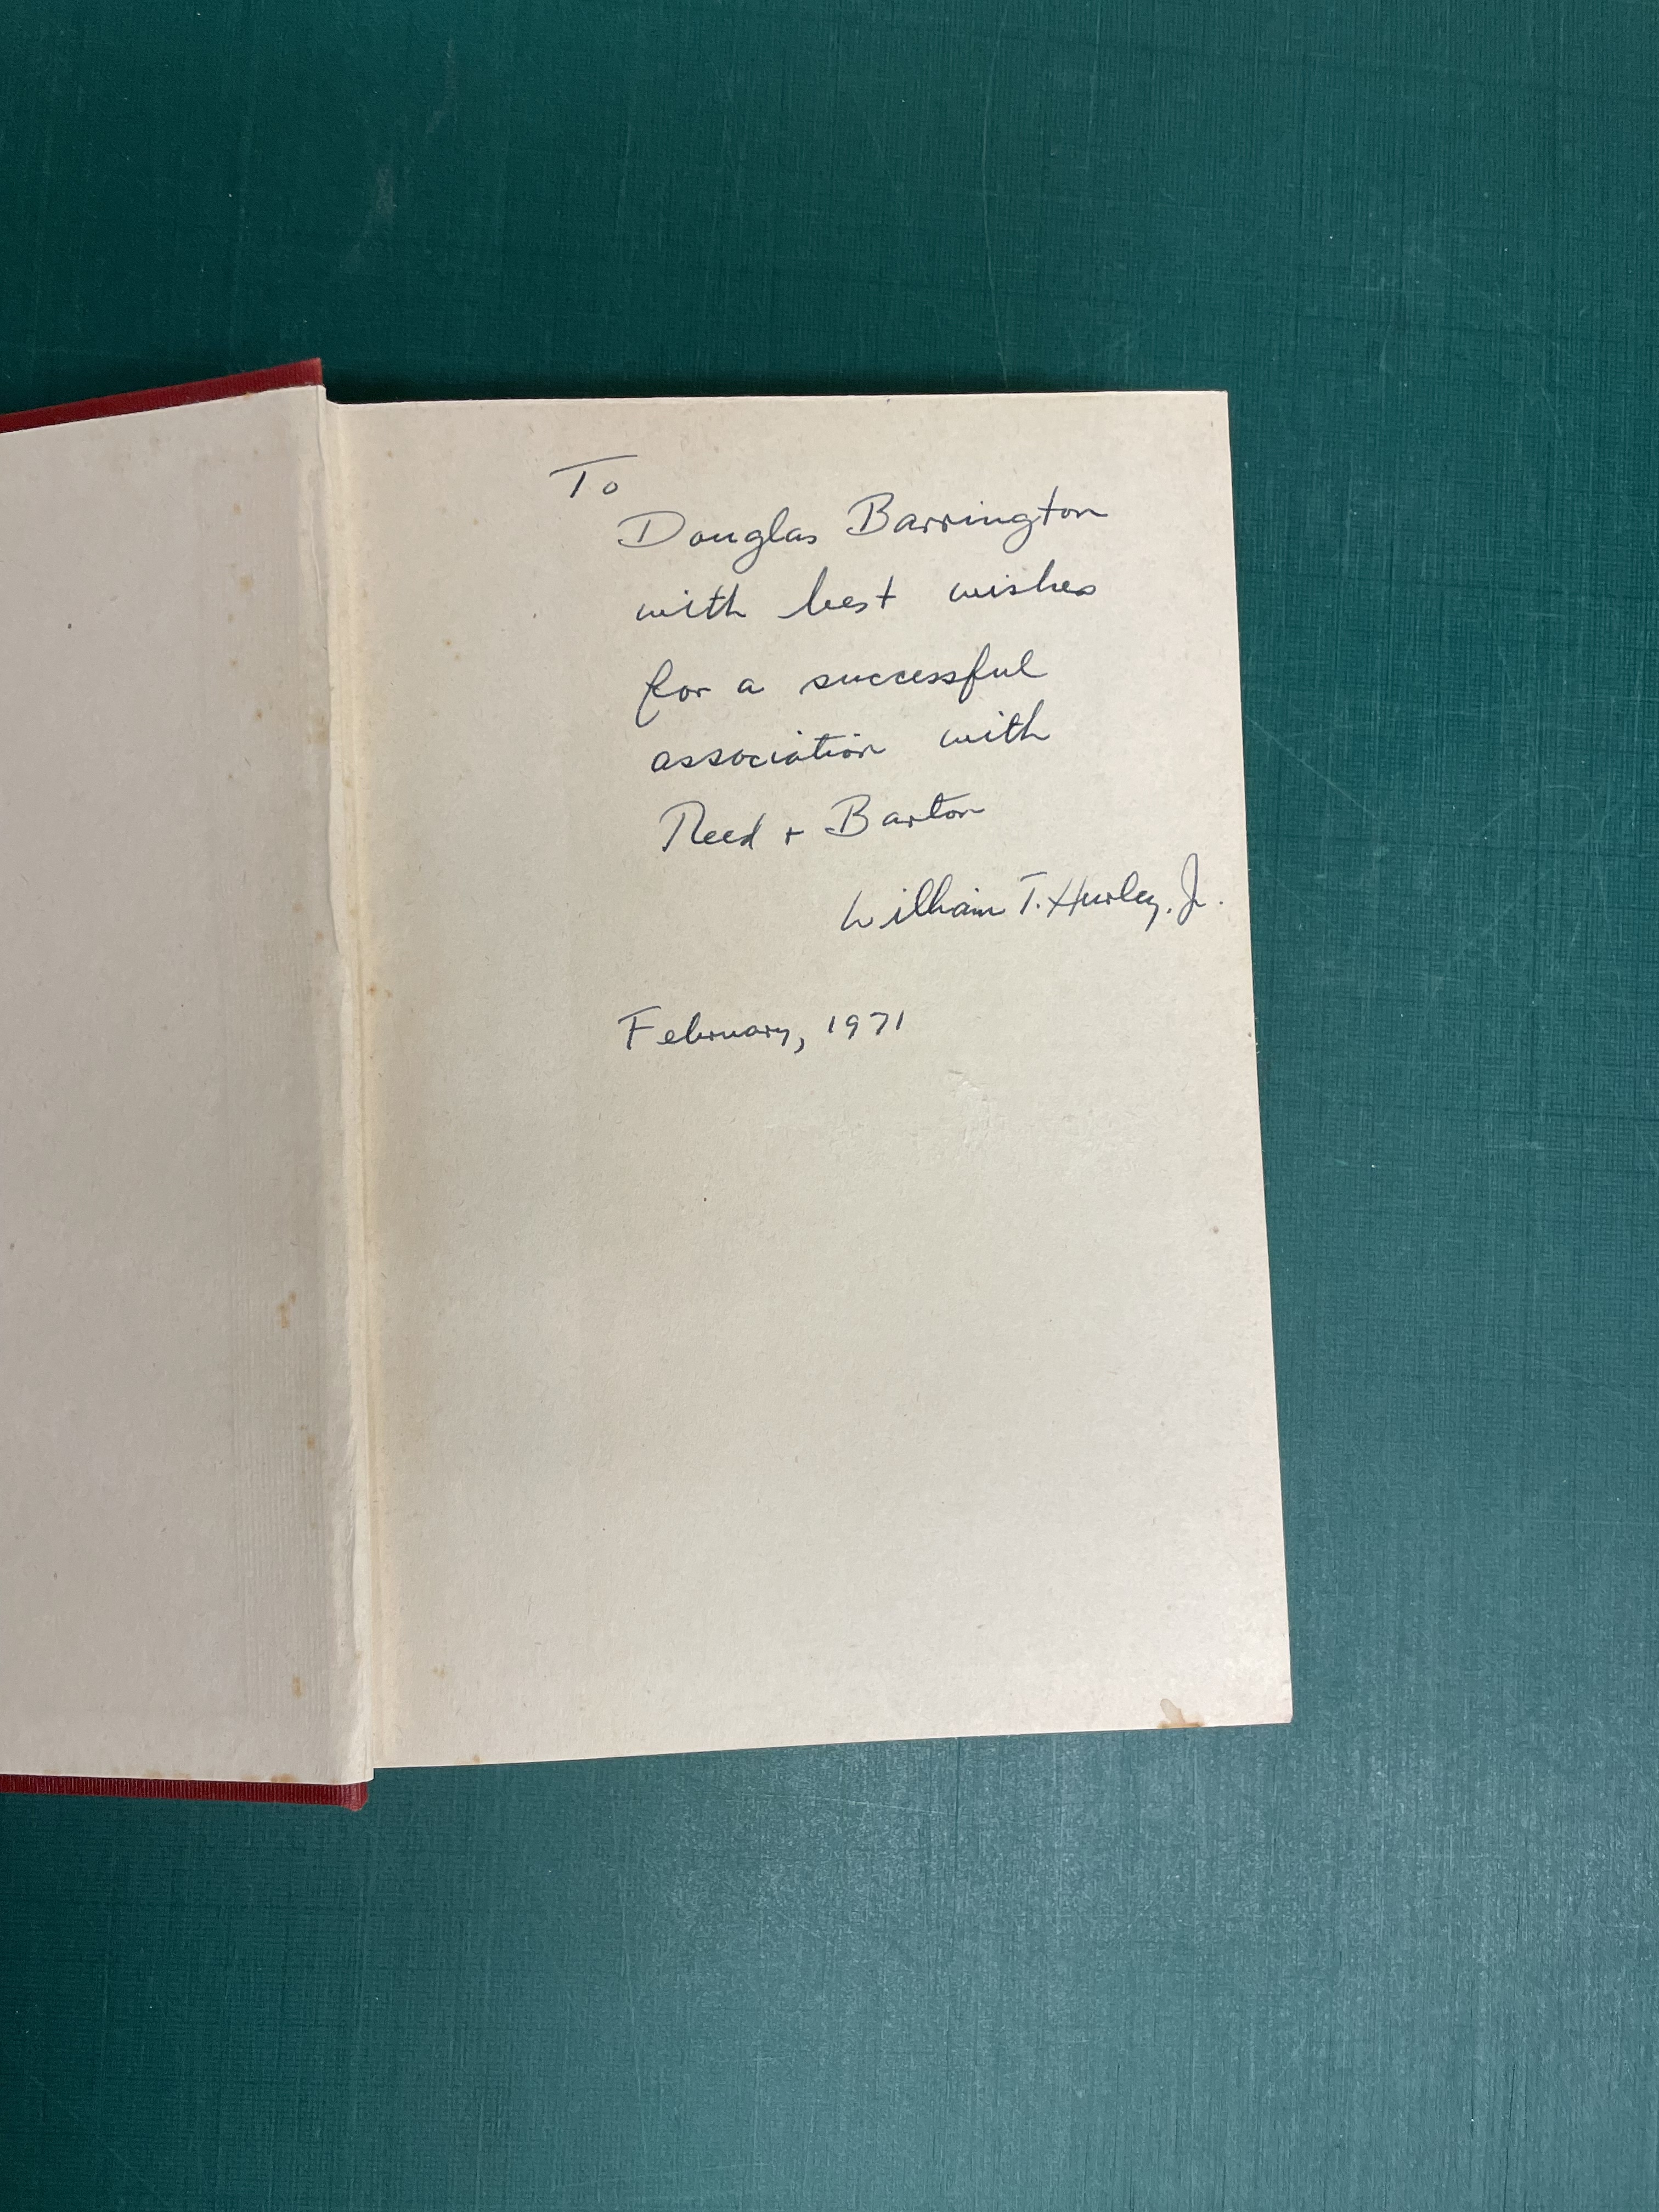 To
Douglas Barrington
with best wishes
for a successful
association with
Reed + Barton
William T. Hurley, Jr.
February, 1971